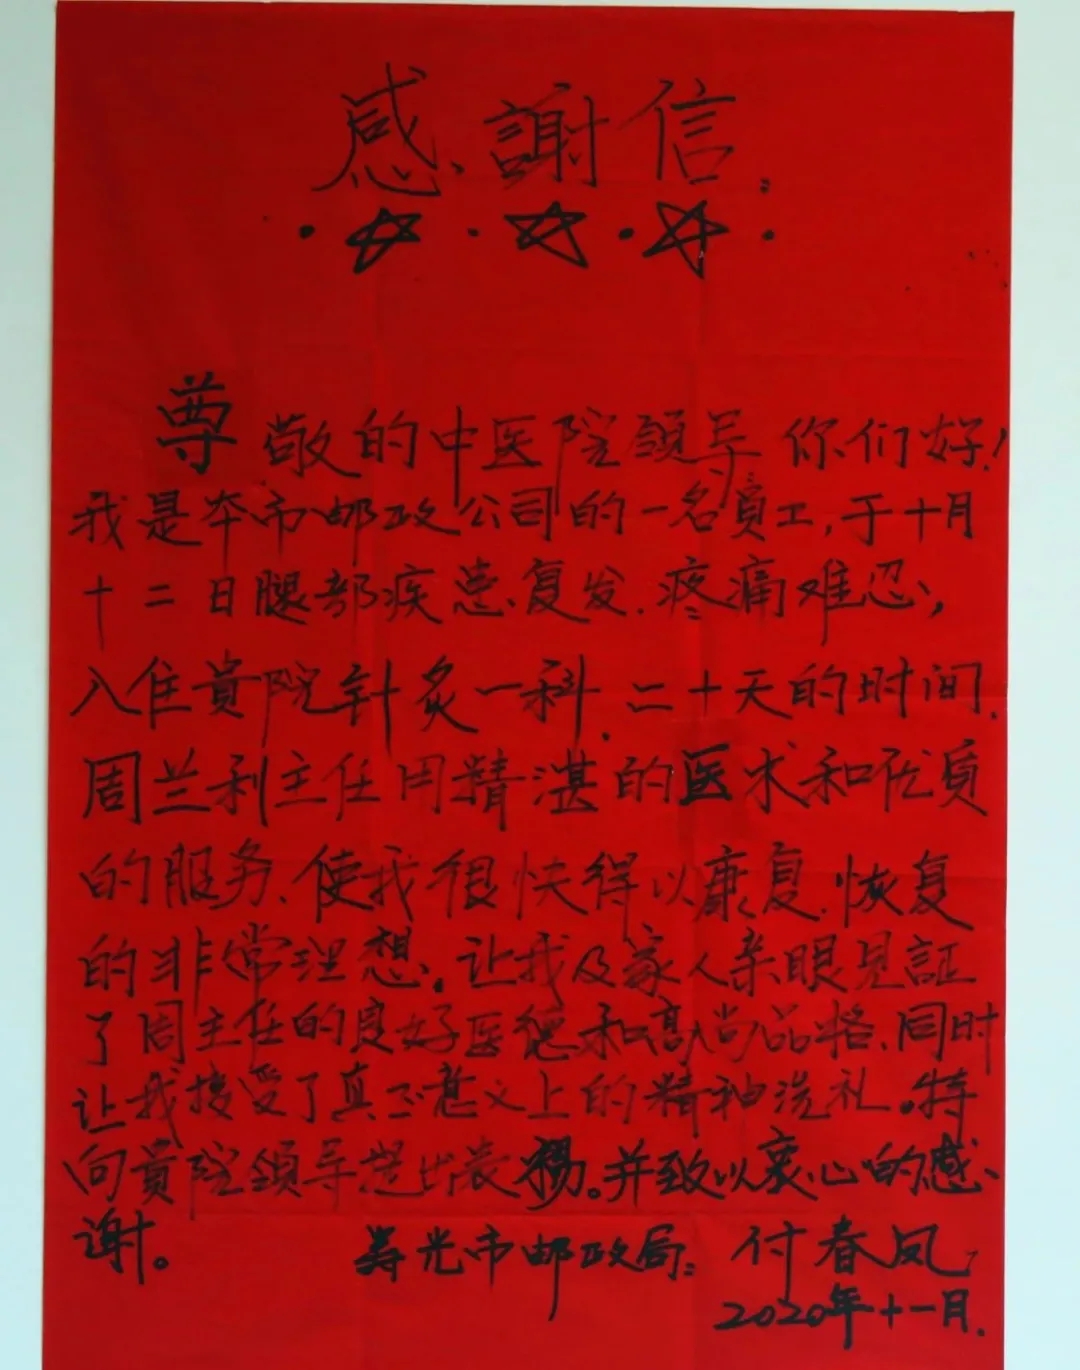 感謝信
尊敬的中医院领导你们好!
我是本市邮政公司的一名員工,于十月
十二日腿部疾患复发.疼痛难忍,
入住貴院针灸一科.二十天的时间.
周兰利主任用精湛的医术和优质
的服务、使我很快得以康复.恢复
的非常理想.让我及家人亲眼见証
了周主任的良好医德和高尚品格、同时
让我接受了真正意义上的精神洗礼。特
向貴院領导提出表揚。并致以衷心的感
谢。 寿光市邮政局:付春凤
2020年十一月.